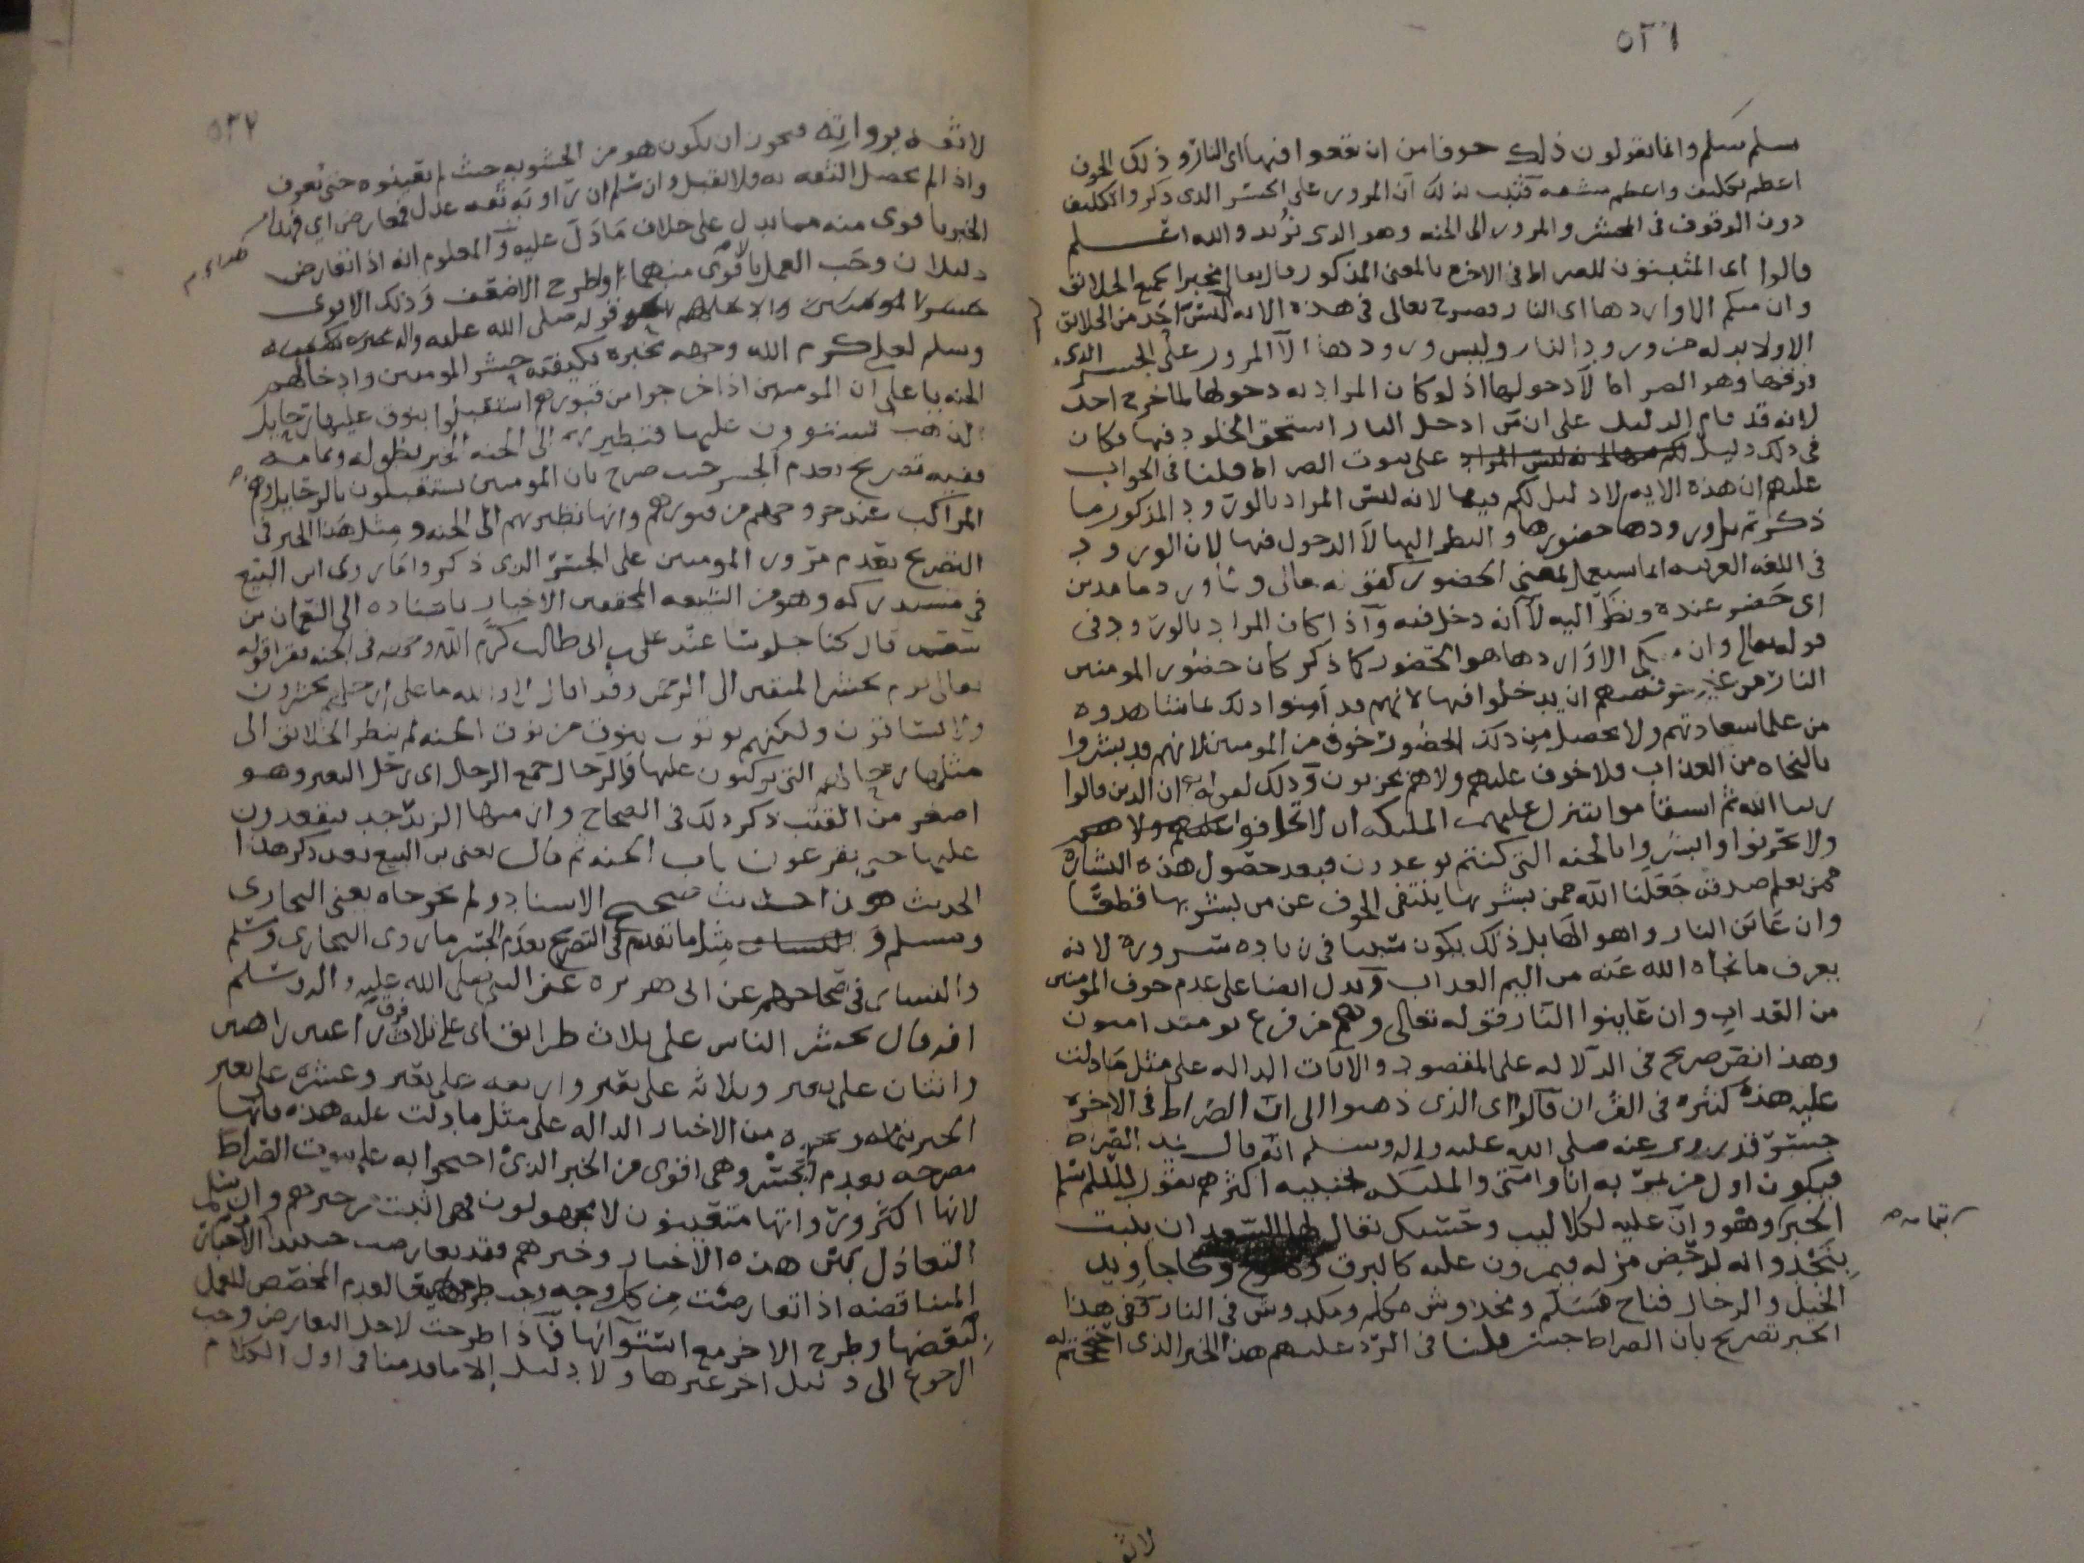 ٥٢٦
سلم سلم وانما يقولون ذلك خوفا من ان يقعوا فيها اى النار وذلك الخوف
اعظم تكليف واعظم مشقه فثبت بذلك ان المرور على الجسر الذى ذكروا تكليف
دون الوقوف فى المحشر والمرور الى الجنه وهو الذى نريد والله اعلم
قالوا اى المثبتون للصراط فى الاخره بالمعنى المذكور قال تعالى مخبرا لجميع الخلائق
وان منكم الا واردها اى النار فصرح تعالى فى هذه الايه ليس احد من الخلائق
الا ولا بد له من ورود النار وليس ورودها الا المرور على الجسر الذى
فوقها وهو الصراط لا دخولها اذ لو كان المراد به دخولها لما خرج احد
لانه قد قام الدليل على ان من ادخل النار استحق الخلود فيها فكان
فى ذلك دليل على ثبوت الصراط قلنا فى الجواب
عليهم ان هذه الايه لا دليل لكم فيها لانه ليس المراد بالورود المذكور ما
ذكرتم بل ورودها حضورها والنظر اليها لا الدخول فيها لان الورود
فى اللغه العربيه انما يستعمل لمعنى الحضور كقوله تعالى ولما ورد ماء مدين
اى حضر عنده ونظر اليه لا انه دخل فيه واذا كان المراد بالورود فى
قوله تعالى وان منكم الا واردها هو الحضور كما ذكر كان حضور المومنين
النار من غير خوف منهم ان يدخلوا فيها لانهم قد امنوا ذلك بما شاهدوه
من علم سعادتهم ولا يحصل من ذلك الحضور خوف من المومنين لانهم قد بشروا
بالنجاه من العذاب فلا خوف عليهم ولا هم يحزنون وذلك لقوله ان الذين قالوا
ربنا الله ثم استقاموا تتنزل عليهم الملئكه ان لا تخافوا
ولا تحزنوا وابشروا بالجنه التى كنتم توعدون فبعد حصول هذه البشاره
ممن يعلم صدقه جعلنا الله ممن يبشر بها ينتفى الخوف عن من يبشر بها قطعا
وان عاين النار واهوالها بل ذلك يكون سببا فى زياده سروره لانه
يعرف ما نجاه الله عنه من اليم العذاب ويدل ايضا على عدم خوف المومنين
من العذاب وان عاينوا النار قوله تعالى وهم من فزع يومئذ امنون
وهذا نص صريح فى الدلاله على المقصود والايات الداله على مثل ما دلت
عليه هذه كثيره فى القران قالوا اى الذى ذهبوا الى ان الصراط فى الاخره
جسر قد روى عنه صلى الله عليه واله وسلم انه قال
فيكون اول من يمر به انا وامتى والملئكه بجنبيه اكثرهم يقول اللهم سلم
الخبر وهو وان عليه لكلاليب وحسك يقال لها السعدان ينبت
بنجد وانه لدحض مزله فيمرون عليه كالبرق وكاجاويد
الخيل والرجال فناج مسلم ومخدوش مكلم ومكدوش فى النار ففى هذا
الخبر تصريح بان الصراط جسر قلنا فى الرد عليهم هذا الخبر الذى احتججتم به
بتمامه
٥٢٧
لا ثقه برواته فيجوز ان يكون هو من الحشويه حيث لم يعينوه حتى نعرف
واذا لم تحصل الثقه به ولا يقبل وان سلم ان راويه ثقه عدل فمعارض اى فهذا
الخبر باقوى منه مما يدل على خلاف ما دل عليه والمعلوم انه اذا تعارض
دليلان وجب العمل بالاقوى منهما وطرح الاضعف وذلك الاقوى
قوله صلى الله عليه واله
وسلم لعلى كرم الله وجهه يخبره بكيفيه حشر المومنين وادخالهم
الجنه يا على ان المومنين اذا خرجوا من قبورهم استقبلوا بنوق عليها رحايل
الذهب يستوون عليها فتطير بهم الى الجنه الخبر بطوله وتمامه
ففيه تصريح بعدم الجسر حيث صرح بان المومنين يستقبلون بالرحايل
المراكب عند خروجهم من قبورهم وانها تطير بهم الى الجنه ومثل هذا الخبر فى
التصريح بعدم مرور المومنين على الجسر الذى ذكروا ما روى ابن البيع
فى مستدركه وهو من الشيعه المحققين الاخيار باسناده الى النعمان بن
سعد قال كنا جلوسا عند على بن ابى طالب كرم الله وجهه فى الجنه فقرا قوله
تعالى يوم نحشر المتقين الى الرحمن وفدا قال لا والله ما على ارجلهم يحشرون
ولا يساقون ولكنهم يوتون بنوق من نوق الجنه لم ينظر الخلائق الى
مثلها رحالهم التى يركبون عليها فالرحال جمع الرحل اى رحل البعير وهو
اصغر من القتب ذكر ذلك فى الصحاح وازمتها الزبرجد فيقعدون
عليها حتى يقرعون باب الجنه ثم قال يعنى بن البيع بعد ذكر هذا
الحديث هذا حديث صحيح الاسناد ولم يخرجاه يعنى البخارى
ومسلم و مثل ما تقدم فى التصريح بعدم الجسر ما روى البخارى ومسلم
والنساى فى صحاحهم عن ابى هريره عن النبى صلى الله عليه واله وسلم
انه قال يحشر الناس على ثلاث طرائق اى على ثلاث فرق راغبين راهبين
واثنان على بعير وثلاثه على بعير واربعه على بعير وعشره على بعير
الخبر بتمامه وغيره من الاخبار الداله على مثل ما دلت عليه هذه فانها
مصرحه بعدم الجسر وهى اقوى من الخبر الذى احتجوا به على ثبوت الصراط
لانها اكثر ورواتها متعينون لا مجهولون فهى اثبت من خبرهم وان سلم
التعادل بين هذه الاخبار وخبرهم فقد تعارضت حينئذ الاخبار
المتناقضه اذا تعارضت من كل وجه وجب طرحها جميعا لعدم المخصص للعمل
ببعضها وطرح الاخر مع استوائها فاذا طرحت لاجل التعارض وجب
الرجوع الى دليل اخر غيرها ولا دليل الا ما قدمنا فى اول الكلام